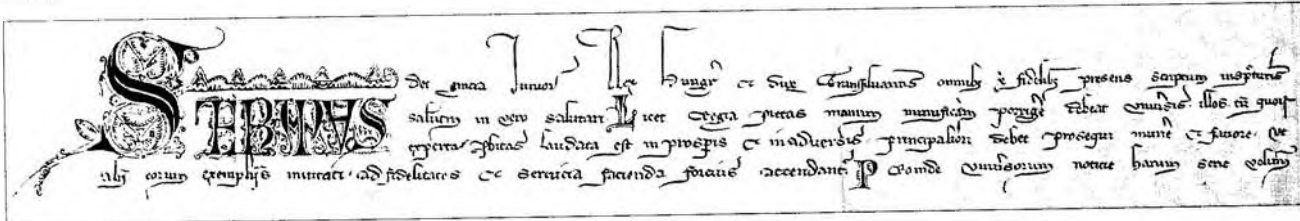 STEPHANUS dei gracia Iunior Rex Hungar et dux Transiluanus omnibus Christi fidelibus presens scriptum inspecturis
salutem in vero salutari Licet Regia pietas manum munificam porrigere debeat vniuersis illos tamen quorum
experta probitas laudata est in prosperis et in aduersis principaliori debet prosequi munere et fauore vt
alii eorum exemplis inuitati ad fidelitates et seruicia facienda forcius accendantur Proinde vniuersorum noticie harum serie volumus